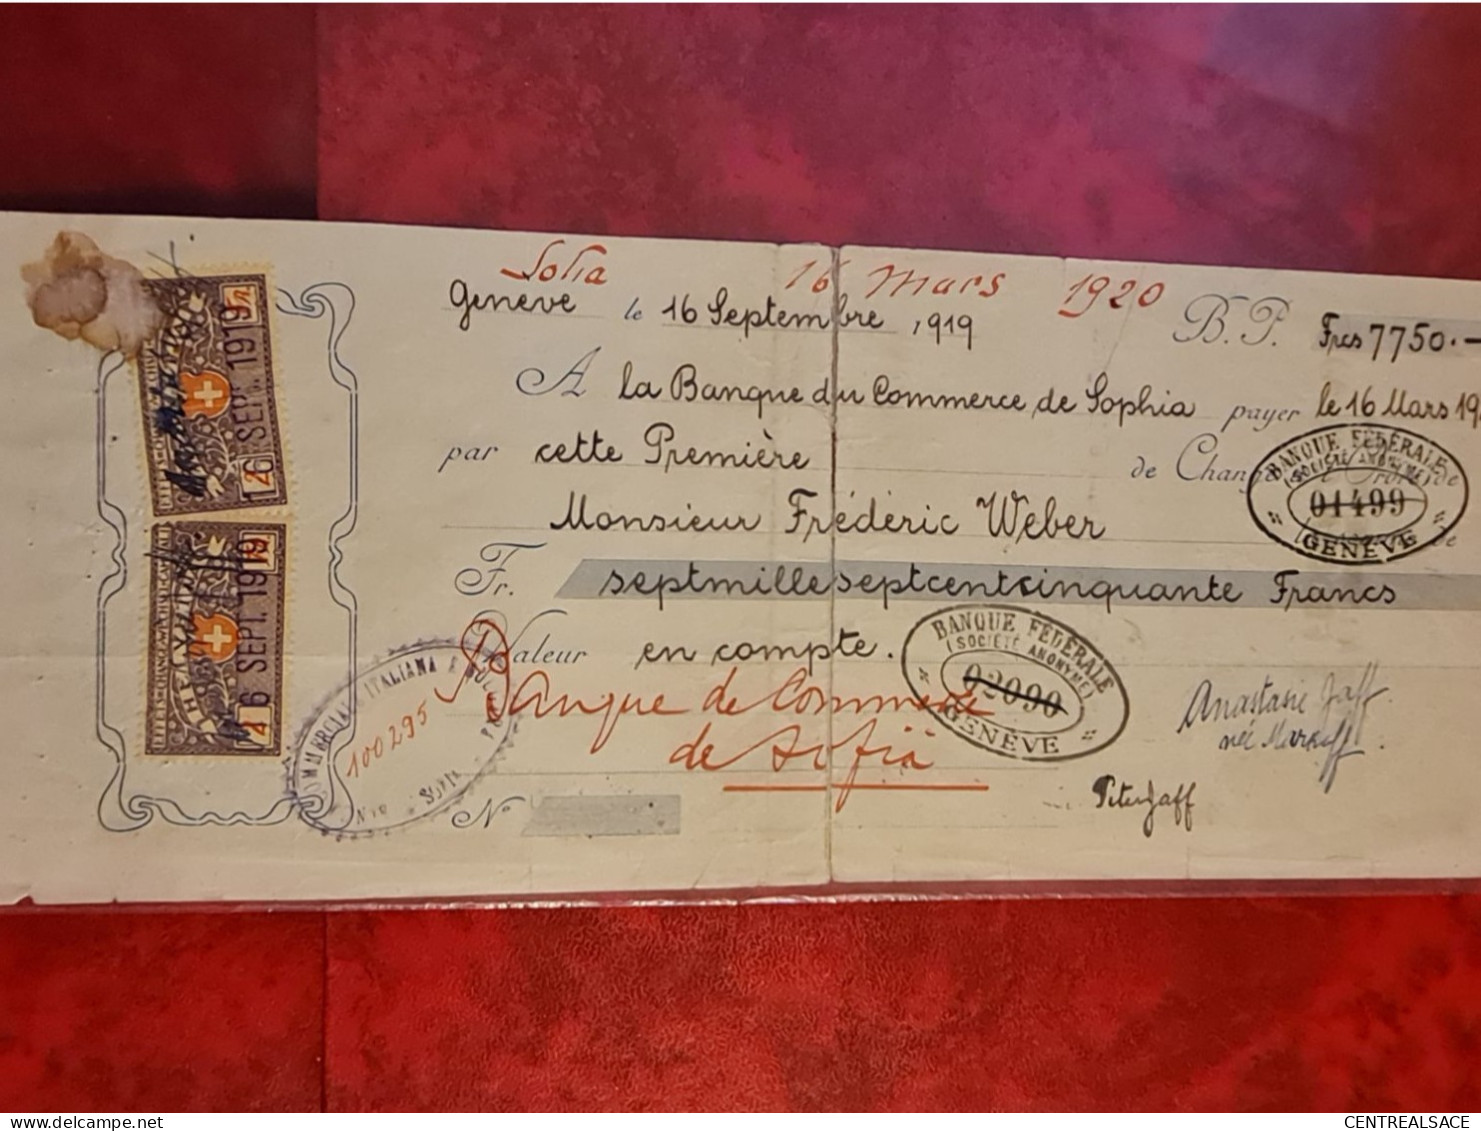 Sofia 16 Mars 1920
Genève le 16 Septembre 1919 B. P. Frcs 7750.—
A la Banque du Commerce de Sophia payer le 16 Mars 19
par cette Première de Chang
Monsieur Frédéric Weber
Fr. septmilleseptcentcinquante Francs
Valeur en compte.
Banque de Commerce
de Sofia
Nº
BANQUE FÉDÉRALE
(SOCIÉTÉ ANONYME)
01499
GENÈVE
BANQUE FÉDÉRALE
(SOCIÉTÉ ANONYME)
02090
GENÈVE
Anastasie Jaff
née Markoff
Peter Jaff
ITALIANA E
100295
SOFIA
16 SEPT. 1919
HELVETIA
16 SEPT. 1919
CENTREALSACE